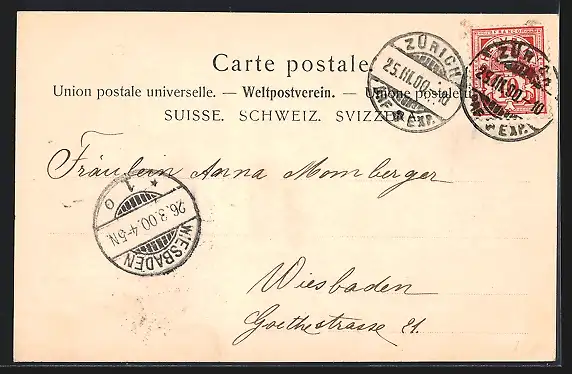 Carte postale.
Union postale universelle. — Weltpostverein. — Unione postale
SUISSE. SCHWEIZ. SVIZZERA.
ZÜRICH
25.III.00.
EXP.
FRANCO
ZÜRICH
25.III.00.
EXP.
Fräulein Anna Momberger
26.3.00.4-5N.
WIESBADEN
Wiesbaden
Goethestrasse 21.